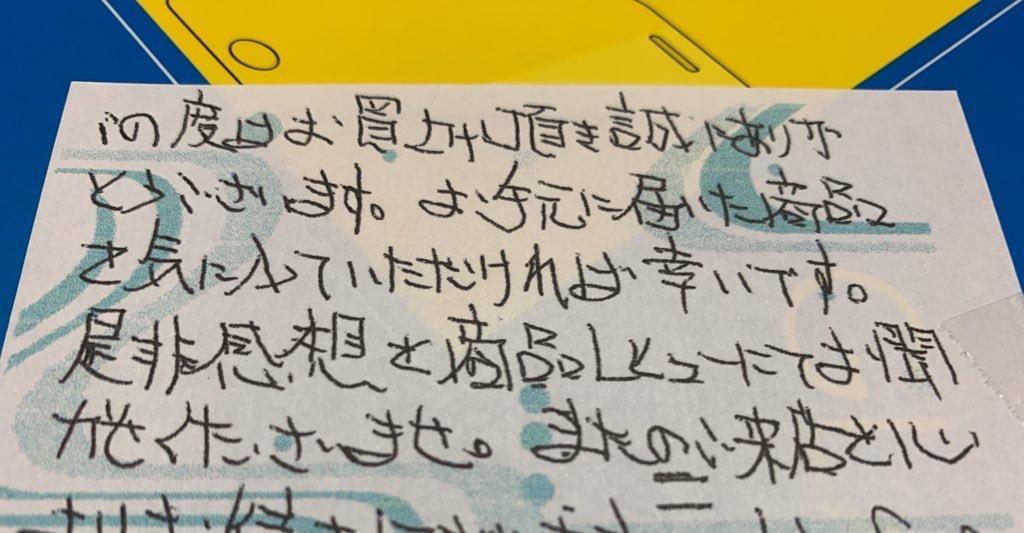 この度はお買上げ頂き誠にありが
とうございます。お手元に届いた商品
を気に入っていただければ幸いです。
是非感想を商品レビューにてお聞
かせくださいませ。またのご来店を心
よりお待ちして